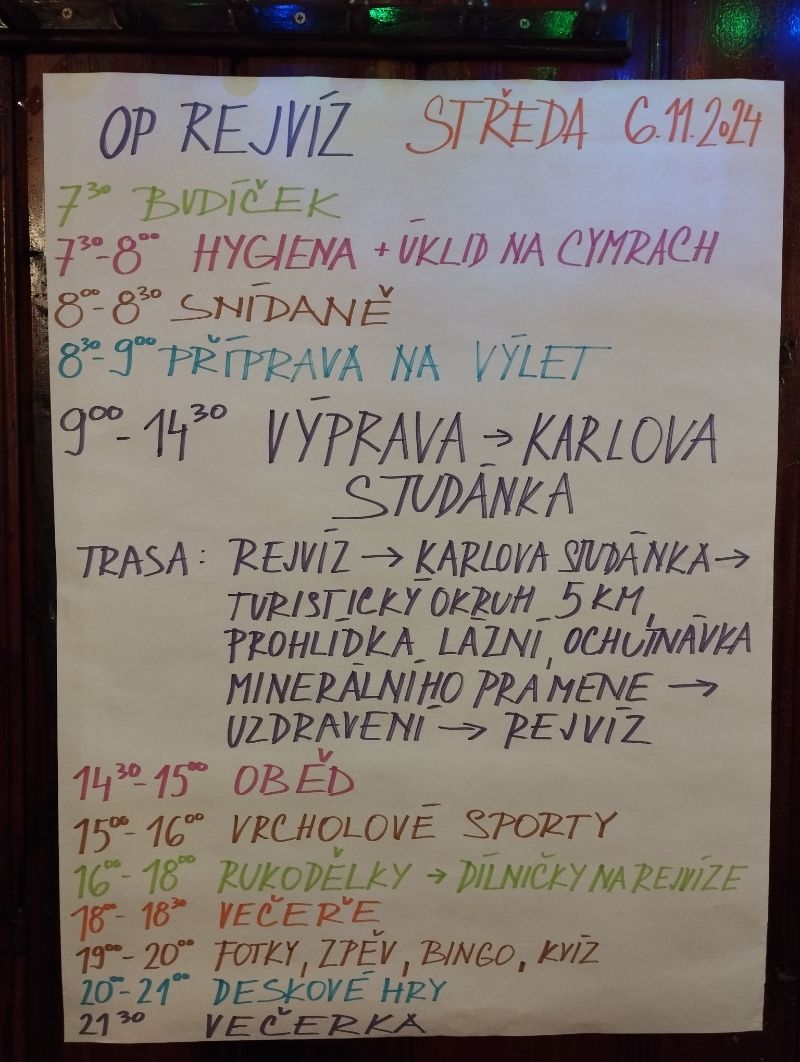 OP REJVÍZ STŘEDA 6.11.2024
7³⁰ BUDÍČEK
7³⁰-8⁰⁰ HYGIENA + ÚKLID NA CYMRACH
8⁰⁰-8³⁰ SNÍDANĚ
8³⁰-9⁰⁰ PŘÍPRAVA NA VÝLET
9⁰⁰-14³⁰ VÝPRAVA → KARLOVA
STUDÁNKA
TRASA: REJVÍZ → KARLOVA STUDÁNKA →
TURISTICKÝ OKRUH 5 KM,
PROHLÍDKA LÁZNÍ, OCHUTNÁVKA
MINERÁLNÍHO PRAMENE →
UZDRAVENÍ → REJVÍZ
14³⁰-15⁰⁰ OBĚD
15⁰⁰-16⁰⁰ VRCHOLOVÉ SPORTY
16⁰⁰-18⁰⁰ RUKODĚLKY → DÍLNIČKY NA REJVÍZE
18⁰⁰-18³⁰ VEČEŘE
19⁰⁰-20⁰⁰ FOTKY, ZPĚV, BINGO, KVÍZ
20⁰⁰-21⁰⁰ DESKOVÉ HRY
21³⁰ VEČERKA